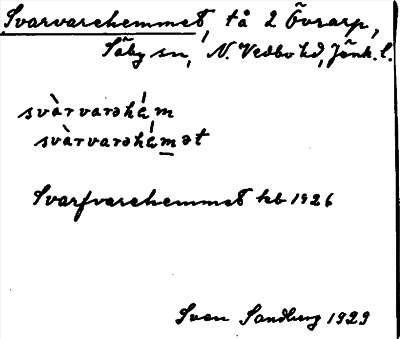 Svarvarehemmet, tå 2 Övrarp,
Säby sn, N. Vedbo hd, Jönk. l.
svàrvarəhém
svàrvarəhémət
Svarfvarehemmet kb 1926
Sven Sandberg 1929